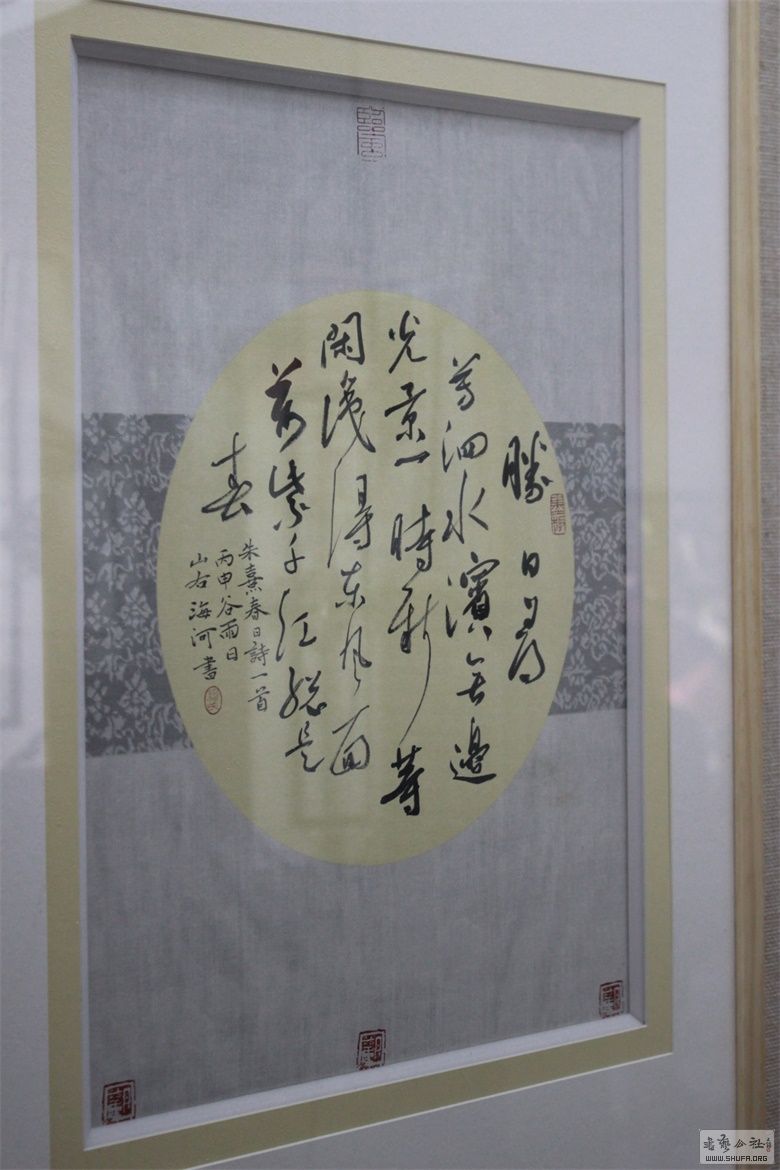 勝日尋
芳泗水濱無邊
光景一時新等
閑識得东風面
萬紫千紅總是
春
朱熹春日詩一首
丙申谷雨日
山右海河書
書藝公社
WWW.SHUFA.ORG